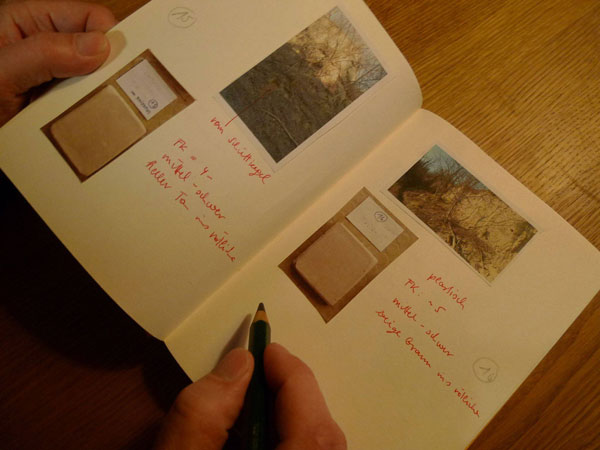 15
vom Schuttkegel
FK = 4-
mittel-schwer
heller Ton ins rötliche
plastisch
FK: ~5
mittel-schwer
beige Braun ins rötliche